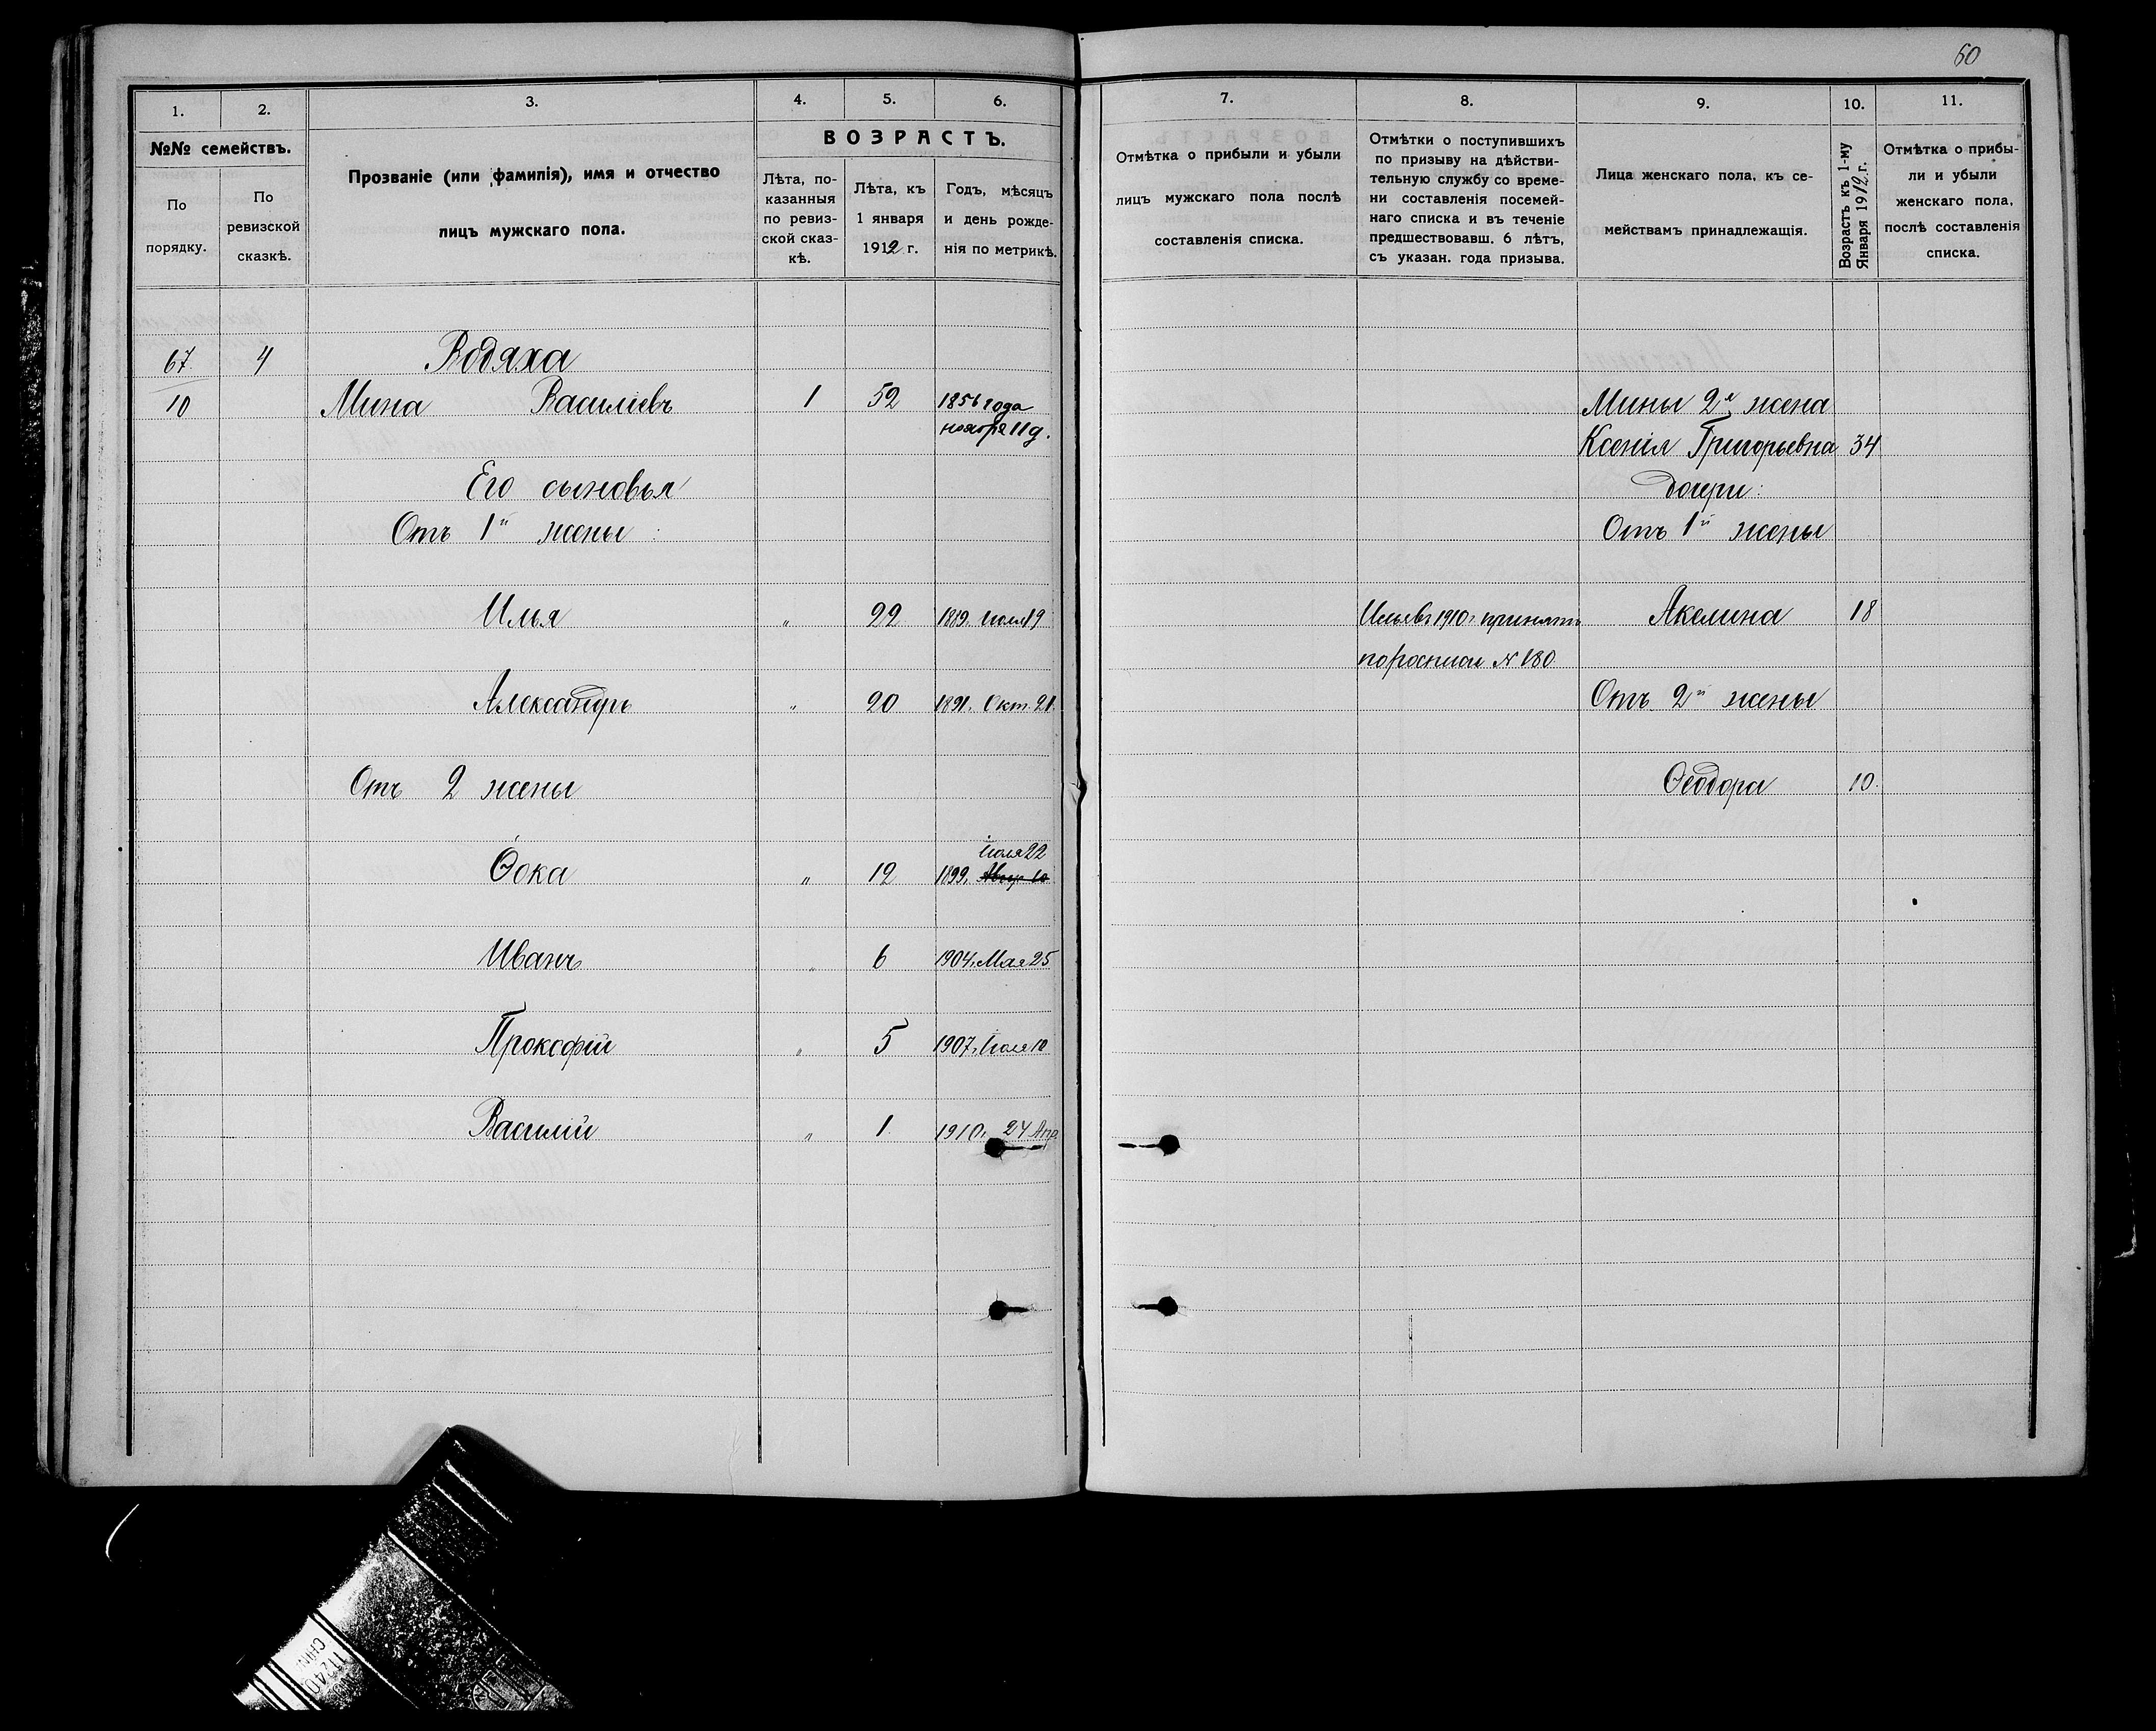 60
1. 2. 3. 4. 5. 6. 7. 8. 9. 10. 11.
№№ семействъ.
По порядку.
По ревизской сказкѣ.
Прозваніе (или фамилія), имя и отчество
лицъ мужскаго пола.
ВОЗРАСТЪ.
Лѣта, по-
казанныя
по ревиз-
ской сказ-
кѣ.
Лѣта, къ
1 января
1912 г.
Годъ, мѣсяцъ
и день рожде-
нія по метрикѣ.
Отмѣтка о прибыли и убыли
лицъ мужского пола послѣ
составленія списка.
Отмѣтки о поступившихъ
по призыву на дѣйстви-
тельную службу со време-
ни составленія посемей-
наго списка и въ теченіе
предшествовавш. 6 лѣтъ,
съ указан. года призыва.
Лица женскаго пола, къ се-
мействамъ принадлежащія.
Возрастъ къ 1-му
Января 1912 г.
Отмѣтка о прибы-
ли и убыли
женскаго пола,
послѣ составленія
списка.
67 4 Водяха
10 Мина Василіевъ 1 52 1856 года Мины 2я жена
ноября 11 д. Ксенія Григорьевна 34
Его сыновья дочери:
Отъ 1й жены: Отъ 1й жены
Илья " 22 1889, Іюля 19 1910г принятъ Акелина 18
№ 180
Александръ " 20 1891, Окт. 21. Отъ 2й жены
Отъ 2 жены Ѳеодора 10.
Іюля 22
Ѳока " 12 1899,
Иванъ " 6 1904, Мая 25
Прокофій " 5 1907, Іюля 10
Василій " 1. 1910, 24 Апр.
11240